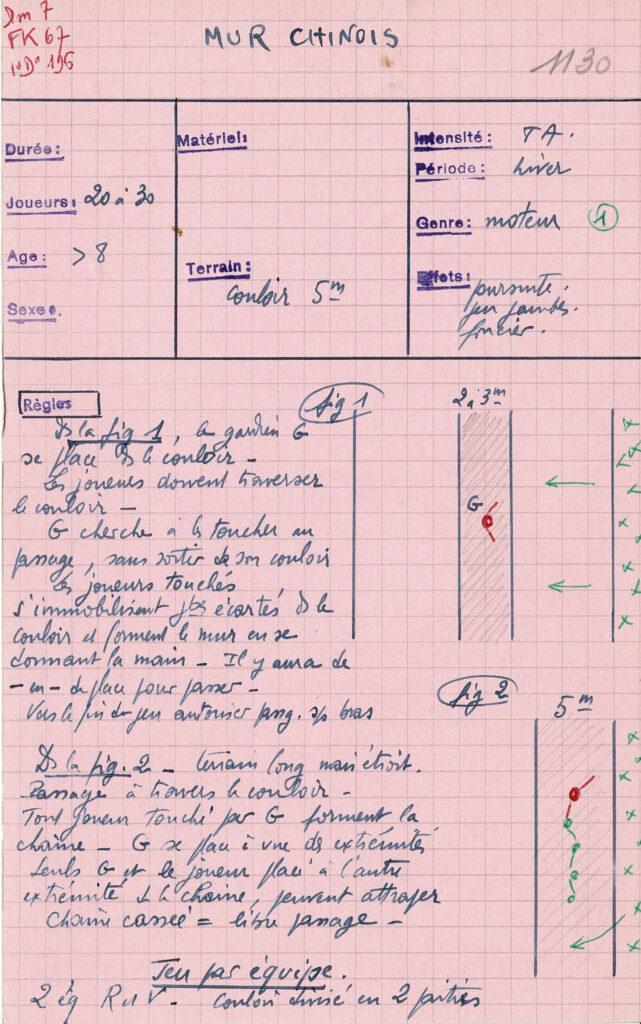 Dm 7
FK 67
1°D° 195
MUR CHINOIS
1130
Durée:
Joueurs: 20 à 30
Age: > 8
Sexe:
Matériel:
Terrain:
couloir 5 m
Intensité: TA.
Période: hiver
Genre: moteur 1
Effets: poursuite.
jeu jambes.
foncier.
Règles
fig 1
2 à 3 m
G
Ds la fig 1, le gardien G
se place ds le couloir -
Les joueurs doivent traverser
le couloir -
G cherche à les toucher au
passage, sans sortir de son couloir
Les joueurs touchés
s'immobilisent jbes écartés ds le
couloir et forment le mur en se
donnant la main - Il y aura de
- en - de place pour passer -
Vers la fin du jeu autoriser pass. s/s bras
fig 2
5 m
Ds la fig. 2 - terrain long mais étroit.
Passage à travers le couloir -
Tout joueur touché par G forment la
chaîne - G se place à une des extrémités
Seuls G et le joueur placé à l'autre
extrémité de la chaîne, peuvent attraper
Chaîne cassée = libre passage -
Jeu par équipe.
2 éq R et V - couloir divisé en 2 parties